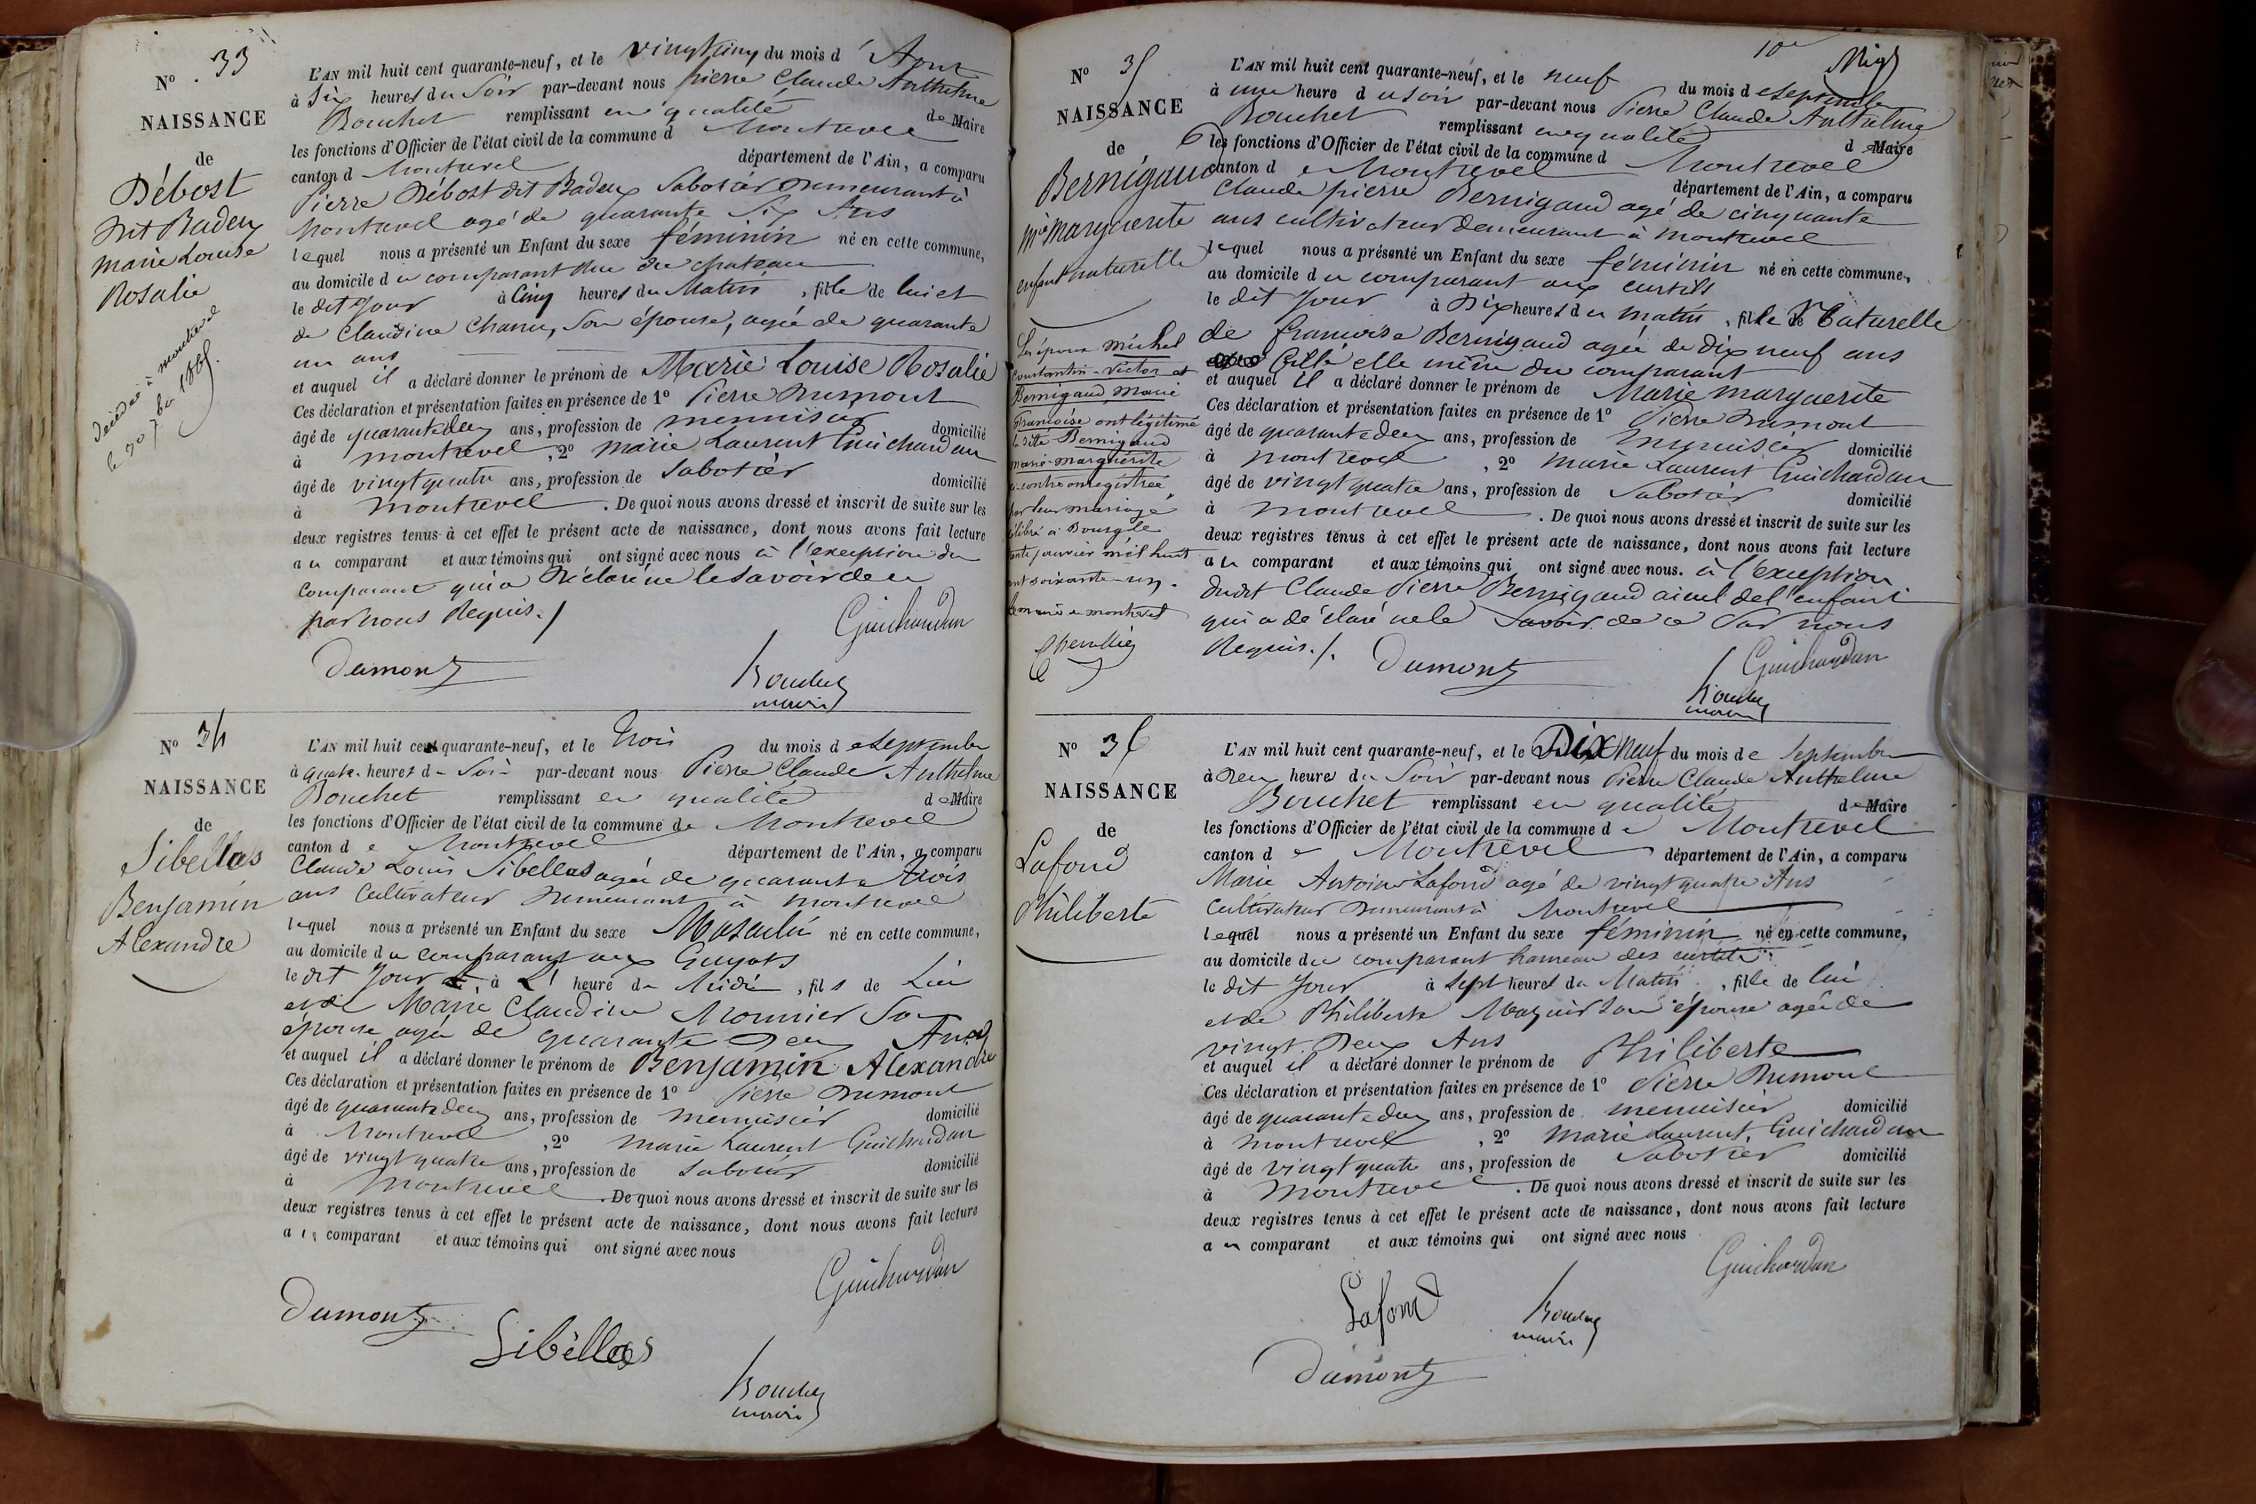 N° 33
NAISSANCE
de
Débost
dit Badoux
Marie Louise
Rosalie
décédée à montrevel
L'AN mil huit cent quarante-neuf, et le vingt cinq du mois d'Aout
à Six heures du Soir par-devant nous pierre Claude Anthelme
Bouchet remplissant en qualité de Maire
les fonctions d'Officier de l'état civil de la commune d Montrevel
canton d Montrevel département de l'Ain, a comparu
Pierre Débost dit Badoux Sabotier demeurant à
Montrevel agé de quarante Six Ans
lequel nous a présenté un Enfant du sexe féminin né en cette commune,
au domicile du comparant Rue du chateau
le dit Jour à Cinq heures du Matin, fille de lui et
de Claudine Chanu, Son épouse, agée de quarante
un ans
et auquel il a déclaré donner le prénom de Marie Louise Rosalie
Ces déclaration et présentation faites en présence de 1° Pierre Dumont
âgé de quarante deux ans, profession de menuisier domicilié
à montrevel, 2° marie Laurent Guichardan
âgé de vingt quatre ans, profession de Sabotier domicilié
à Montrevel. De quoi nous avons dressé et inscrit de suite sur les
deux registres tenus à cet effet le présent acte de naissance, dont nous avons fait lecture
au comparant et aux témoins qui ont signé avec nous à l'exception du
comparant qui a Déclaré ne le Savoir de ce
par nous Requis./
Guichardan
Dumont
Bouchet
maire
N° 34
NAISSANCE
de
Sibellas
Benjamin
Alexandre
L'AN mil huit cent quarante-neuf, et le trois du mois de Septembre
à quatre heures du Soir par-devant nous Pierre Claude Anthelme
Bouchet remplissant en qualité de Maire
les fonctions d'Officier de l'état civil de la commune de Montrevel
canton de Montrevel département de l'Ain, a comparu
Claude Louis Sibellas agé de quarante trois
ans Cultivateur demeurant à montrevel
lequel nous a présenté un Enfant du sexe Masculin né en cette commune,
au domicile du comparant aux Guyots
le dit Jour à L' heure de Midi, fils de Lui
et de Marie Claudine Monnier Son
épouse agée de quarante Deux Ans
et auquel il a déclaré donner le prénom de Benjamin Alexandre
Ces déclaration et présentation faites en présence de 1° Pierre Dumont
âgé de quarante deux ans, profession de menuisier domicilié
à Montrevel, 2° marie Laurent Guichardan
âgé de vingt quatre ans, profession de Sabotier domicilié
à Montrevel. De quoi nous avons dressé et inscrit de suite sur les
deux registres tenus à cet effet le présent acte de naissance, dont nous avons fait lecture
au comparant et aux témoins qui ont signé avec nous
Guichardan
Dumont
Sibellas
Bouchet
maire
10e
N° 35
NAISSANCE
de
Bernigaud
Mie Marguerite
enfant naturelle
Les époux Michel
Constantin-Victor et
Bernigaud, Marie
Françoise ont légitimé
la dite Bernigaud
marie-marguerite
ci-contre enregistrée
par leur mariage
célébré à Bourg le
trente janvier mil huit
cent soixante-un.
Le maire de montrevel
L'AN mil huit cent quarante-neuf, et le neuf du mois de Septembre
à une heure du soir par-devant nous Pierre Claude Anthelme
Bouchet remplissant en qualité de Maire
les fonctions d'Officier de l'état civil de la commune d Montrevel
canton de Montrevel département de l'Ain, a comparu
Claude pierre Bernigaud agé de cinquante
ans cultivateur demeurant à montrevel
lequel nous a présenté un Enfant du sexe féminin né en cette commune,
au domicile du comparant aux curtils
le dit Jour à Dix heures du matin, fille Naturelle
de françoise Bernigaud agée de dix neuf ans
fille elle même du comparant
et auquel il a déclaré donner le prénom de Marie marguerite
Ces déclaration et présentation faites en présence de 1° Pierre Dumont
âgé de quarante deux ans, profession de menuisier domicilié
à Montrevel, 2° marie Laurent Guichardan
âgé de vingt quatre ans, profession de Sabotier domicilié
à Montrevel. De quoi nous avons dressé et inscrit de suite sur les
deux registres tenus à cet effet le présent acte de naissance, dont nous avons fait lecture
au comparant et aux témoins qui ont signé avec nous. à l'exception
dudit Claude Pierre Bernigaud aieul de l'enfant
qui a déclaré ne le Savoir de ce Par nous
Requis./.
Dumont
Guichardan
Bouchet
maire
N° 36
NAISSANCE
de
Lafond
Philiberte
L'AN mil huit cent quarante-neuf, et le Dix Neuf du mois de Septembre
à Deux heures du Soir par-devant nous Pierre Claude Anthelme
Bouchet remplissant en qualité de Maire
les fonctions d'Officier de l'état civil de la commune de Montrevel
canton de Montrevel département de l'Ain, a comparu
Marie Antoine Lafond agé de vingt quatre Ans
Cultivateur demeurant à Montrevel
lequel nous a présenté un Enfant du sexe féminin né en cette commune,
au domicile du comparant hameau des curtils
le dit Jour à Sept heures du Matin, fille de lui
et de Philiberte Mazuir Son épouse agée de
vingt Deux Ans
et auquel il a déclaré donner le prénom de Philiberte
Ces déclaration et présentation faites en présence de 1° Pierre Dumont
âgé de quarante deux ans, profession de menuisier domicilié
à Montrevel, 2° Marie Laurent Guichardan
âgé de vingt quatre ans, profession de Sabotier domicilié
à Montrevel. De quoi nous avons dressé et inscrit de suite sur les
deux registres tenus à cet effet le présent acte de naissance, dont nous avons fait lecture
au comparant et aux témoins qui ont signé avec nous
Guichardan
Lafond
Bouchet
maire
Dumont